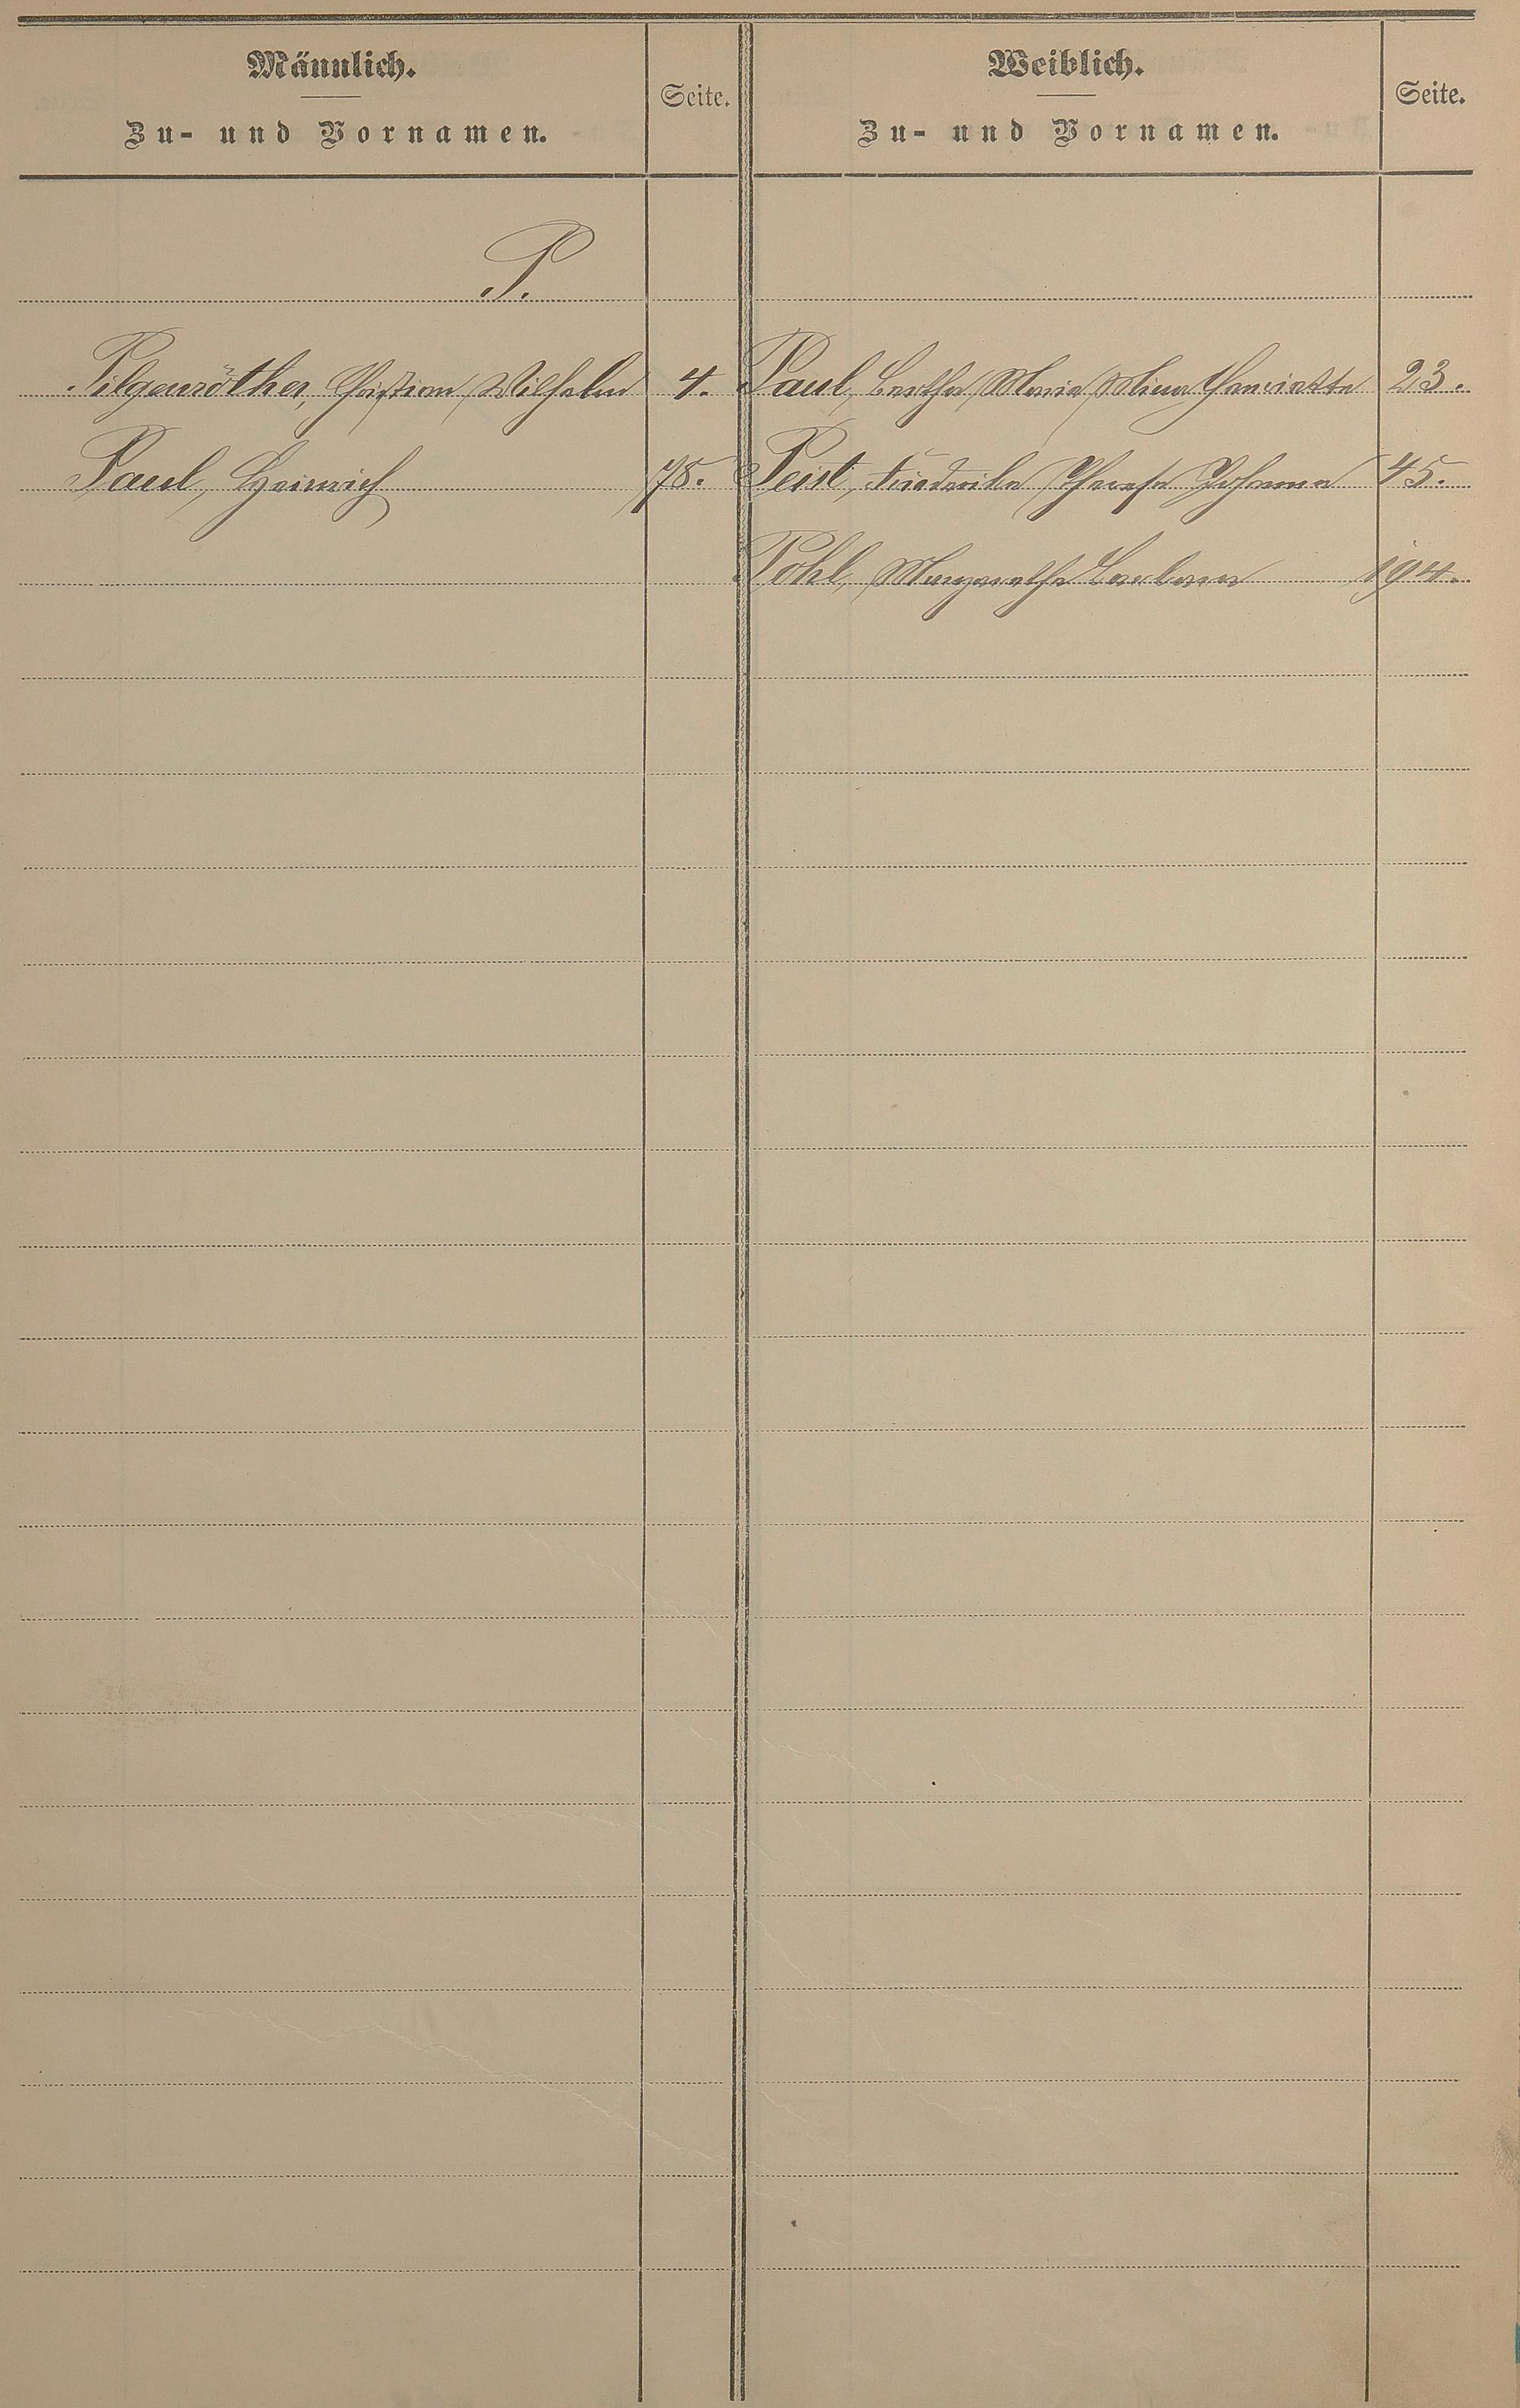 Männlich.
Zu- und Vornamen.
Seite.
Weiblich.
Zu- und Vornamen.
Seite.
P.
Pilgenröther, Christian Wilhelm 4.
Paul, Bertha Maria Mina Henriette 23.
Paul, Heinrich 78.
Peist, Friederike Therese Johanna 45.
Pohl, Margarethe Barbara 194.